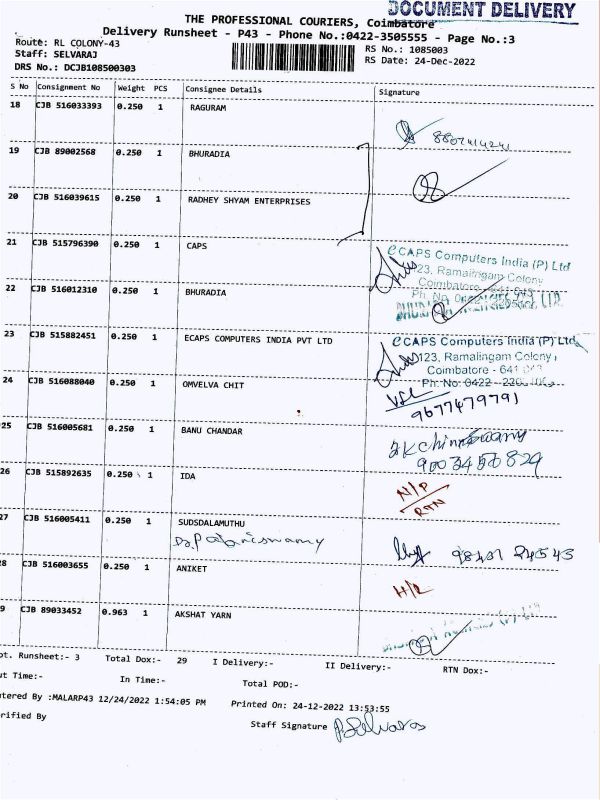 DOCUMENT DELIVERY
THE PROFESSIONAL COURIERS, Coimbatore
Delivery Runsheet - P43 - Phone No.:0422-3505555 - Page No.:3
Route: RL COLONY-43
RS No.: 1085003
Staff: SELVARAJ
RS Date: 24-Dec-2022
DRS No.: DCJB108500303
S No Consignment No Weight PCS Consignee Details Signature
18 CJB 516033393 0.250 1 RAGURAM
19 CJB 89002568 0.250 1 BHURADIA
20 CJB 516039615 0.250 1 RADHEY SHYAM ENTERPRISES
21 CJB 515796390 0.250 1 CAPS
eCAPS Computers India (P) Ltd
123, Ramalingam Colony
Coimbatore
22 CJB 516012310 0.250 1 BHURADIA
Ph. No
23 CJB 515882451 0.250 1 ECAPS COMPUTERS INDIA PVT LTD
eCAPS Computers India (P) Ltd
123, Ramalingam Colony,
Coimbatore - 641
24 CJB 516088040 0.250 1 OMVELVA CHIT
Ph: No: 0422
9677479791
25 CJB 516005681 0.250 1 BANU CHANDAR
26 CJB 515892635 0.250 1 IDA
N/P
RTN
27 CJB 516005411 0.250 1 SUDSDALAMUTHU
28 CJB 516003655 0.250 1 ANIKET
H/L
9 CJB 89033452 0.963 1 AKSHAT YARN
ot. Runsheet:- 3 Total Dox:- 29 I Delivery:- II Delivery:- RTN Dox:-
ut Time:- In Time:- Total POD:-
tered By :MALARP43 12/24/2022 1:54:05 PM Printed On: 24-12-2022 13:53:55
rified By
Staff Signature P.Selvaraj